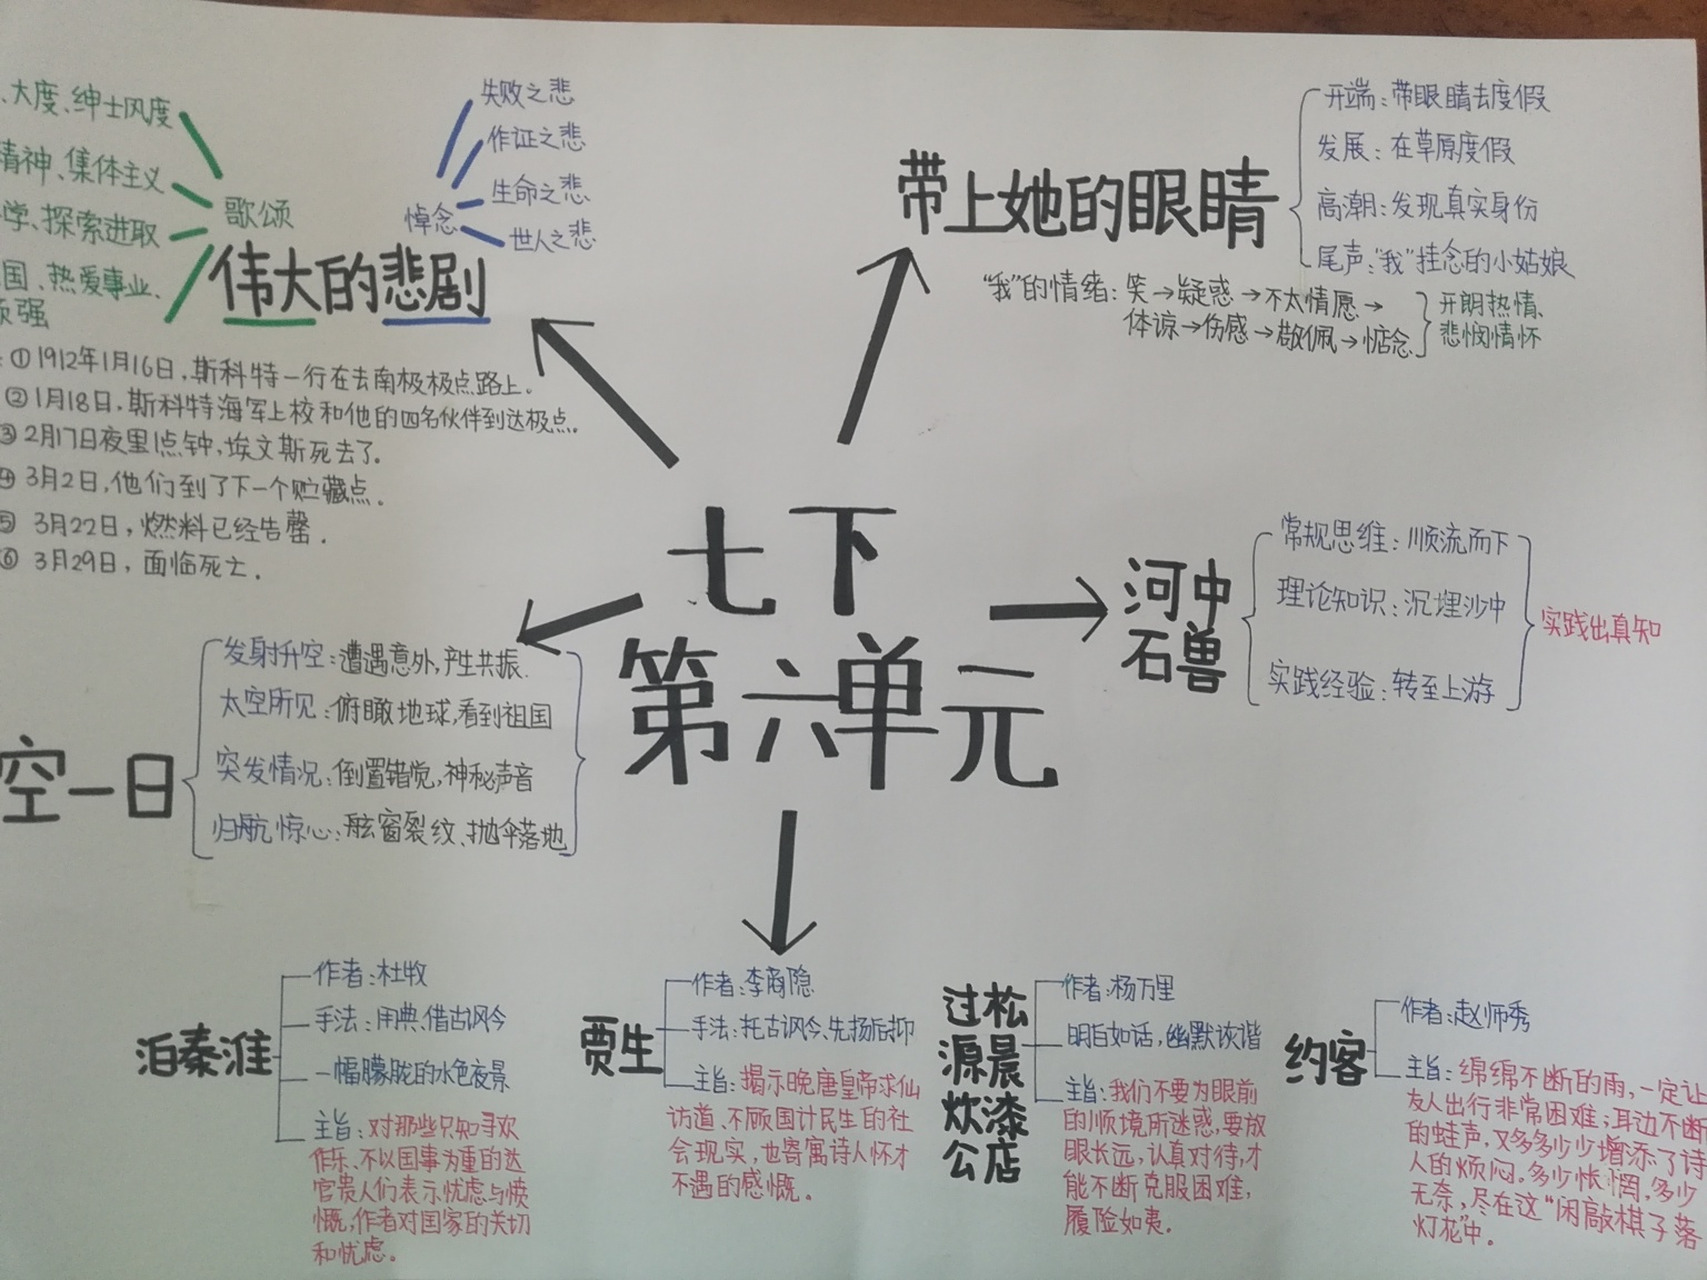 七下
第六单元
伟大的悲剧
歌颂
、大度、绅士风度
精神、集体主义
学、探索进取
国、热爱事业、
强
悼念
失败之悲
作证之悲
生命之悲
世人之悲
①1912年1月16日,斯科特一行在去南极极点路上。
②1月18日,斯科特海军上校和他的四名伙伴到达极点。
③2月17日夜里1点钟,埃文斯死去了.
④3月2日,他们到了下一个贮藏点。
⑤ 3月22日,燃料已经告罄.
⑥ 3月29日,面临死亡.
带上她的眼睛
开端:带眼睛去度假
发展:在草原度假
高潮:发现真实身份
尾声:“我”挂念的小姑娘
“我”的情绪:笑→疑惑→不太情愿→
体谅→伤感→敬佩→惦念
开朗热情、
悲悯情怀
河中
石兽
常规思维:顺流而下
理论知识:沉埋沙中
实践经验:转至上游
实践出真知
空一日
发射升空:遭遇意外,产生共振.
太空所见:俯瞰地球,看到祖国
突发情况:倒置错觉,神秘声音
归航惊心:舷窗裂纹、抛伞落地
泊秦淮
作者:杜牧
手法:用典、借古讽今
一幅朦胧的水色夜景
主旨:对那些只知寻欢
作乐、不以国事为重的达
官贵人们表示忧虑与愤
慨,作者对国家的关切
和忧虑。
贾生
作者:李商隐
手法:托古讽今、先扬后抑
主旨:揭示晚唐皇帝求仙
访道、不顾国计民生的社
会现实,也寄寓诗人怀才
不遇的感慨。
过松
源晨
炊漆
公店
作者:杨万里
明白如话,幽默诙谐
主旨:我们不要为眼前
的顺境所迷惑,要放
眼长远,认真对待,才
能不断克服困难,
履险如夷。
约客
作者:赵师秀
主旨:绵绵不断的雨,一定让
友人出行非常困难;耳边不断
的蛙声,又多多少少增添了诗
人的烦闷。多少怅惘,多少
无奈,尽在这“闲敲棋子落
灯花”中。